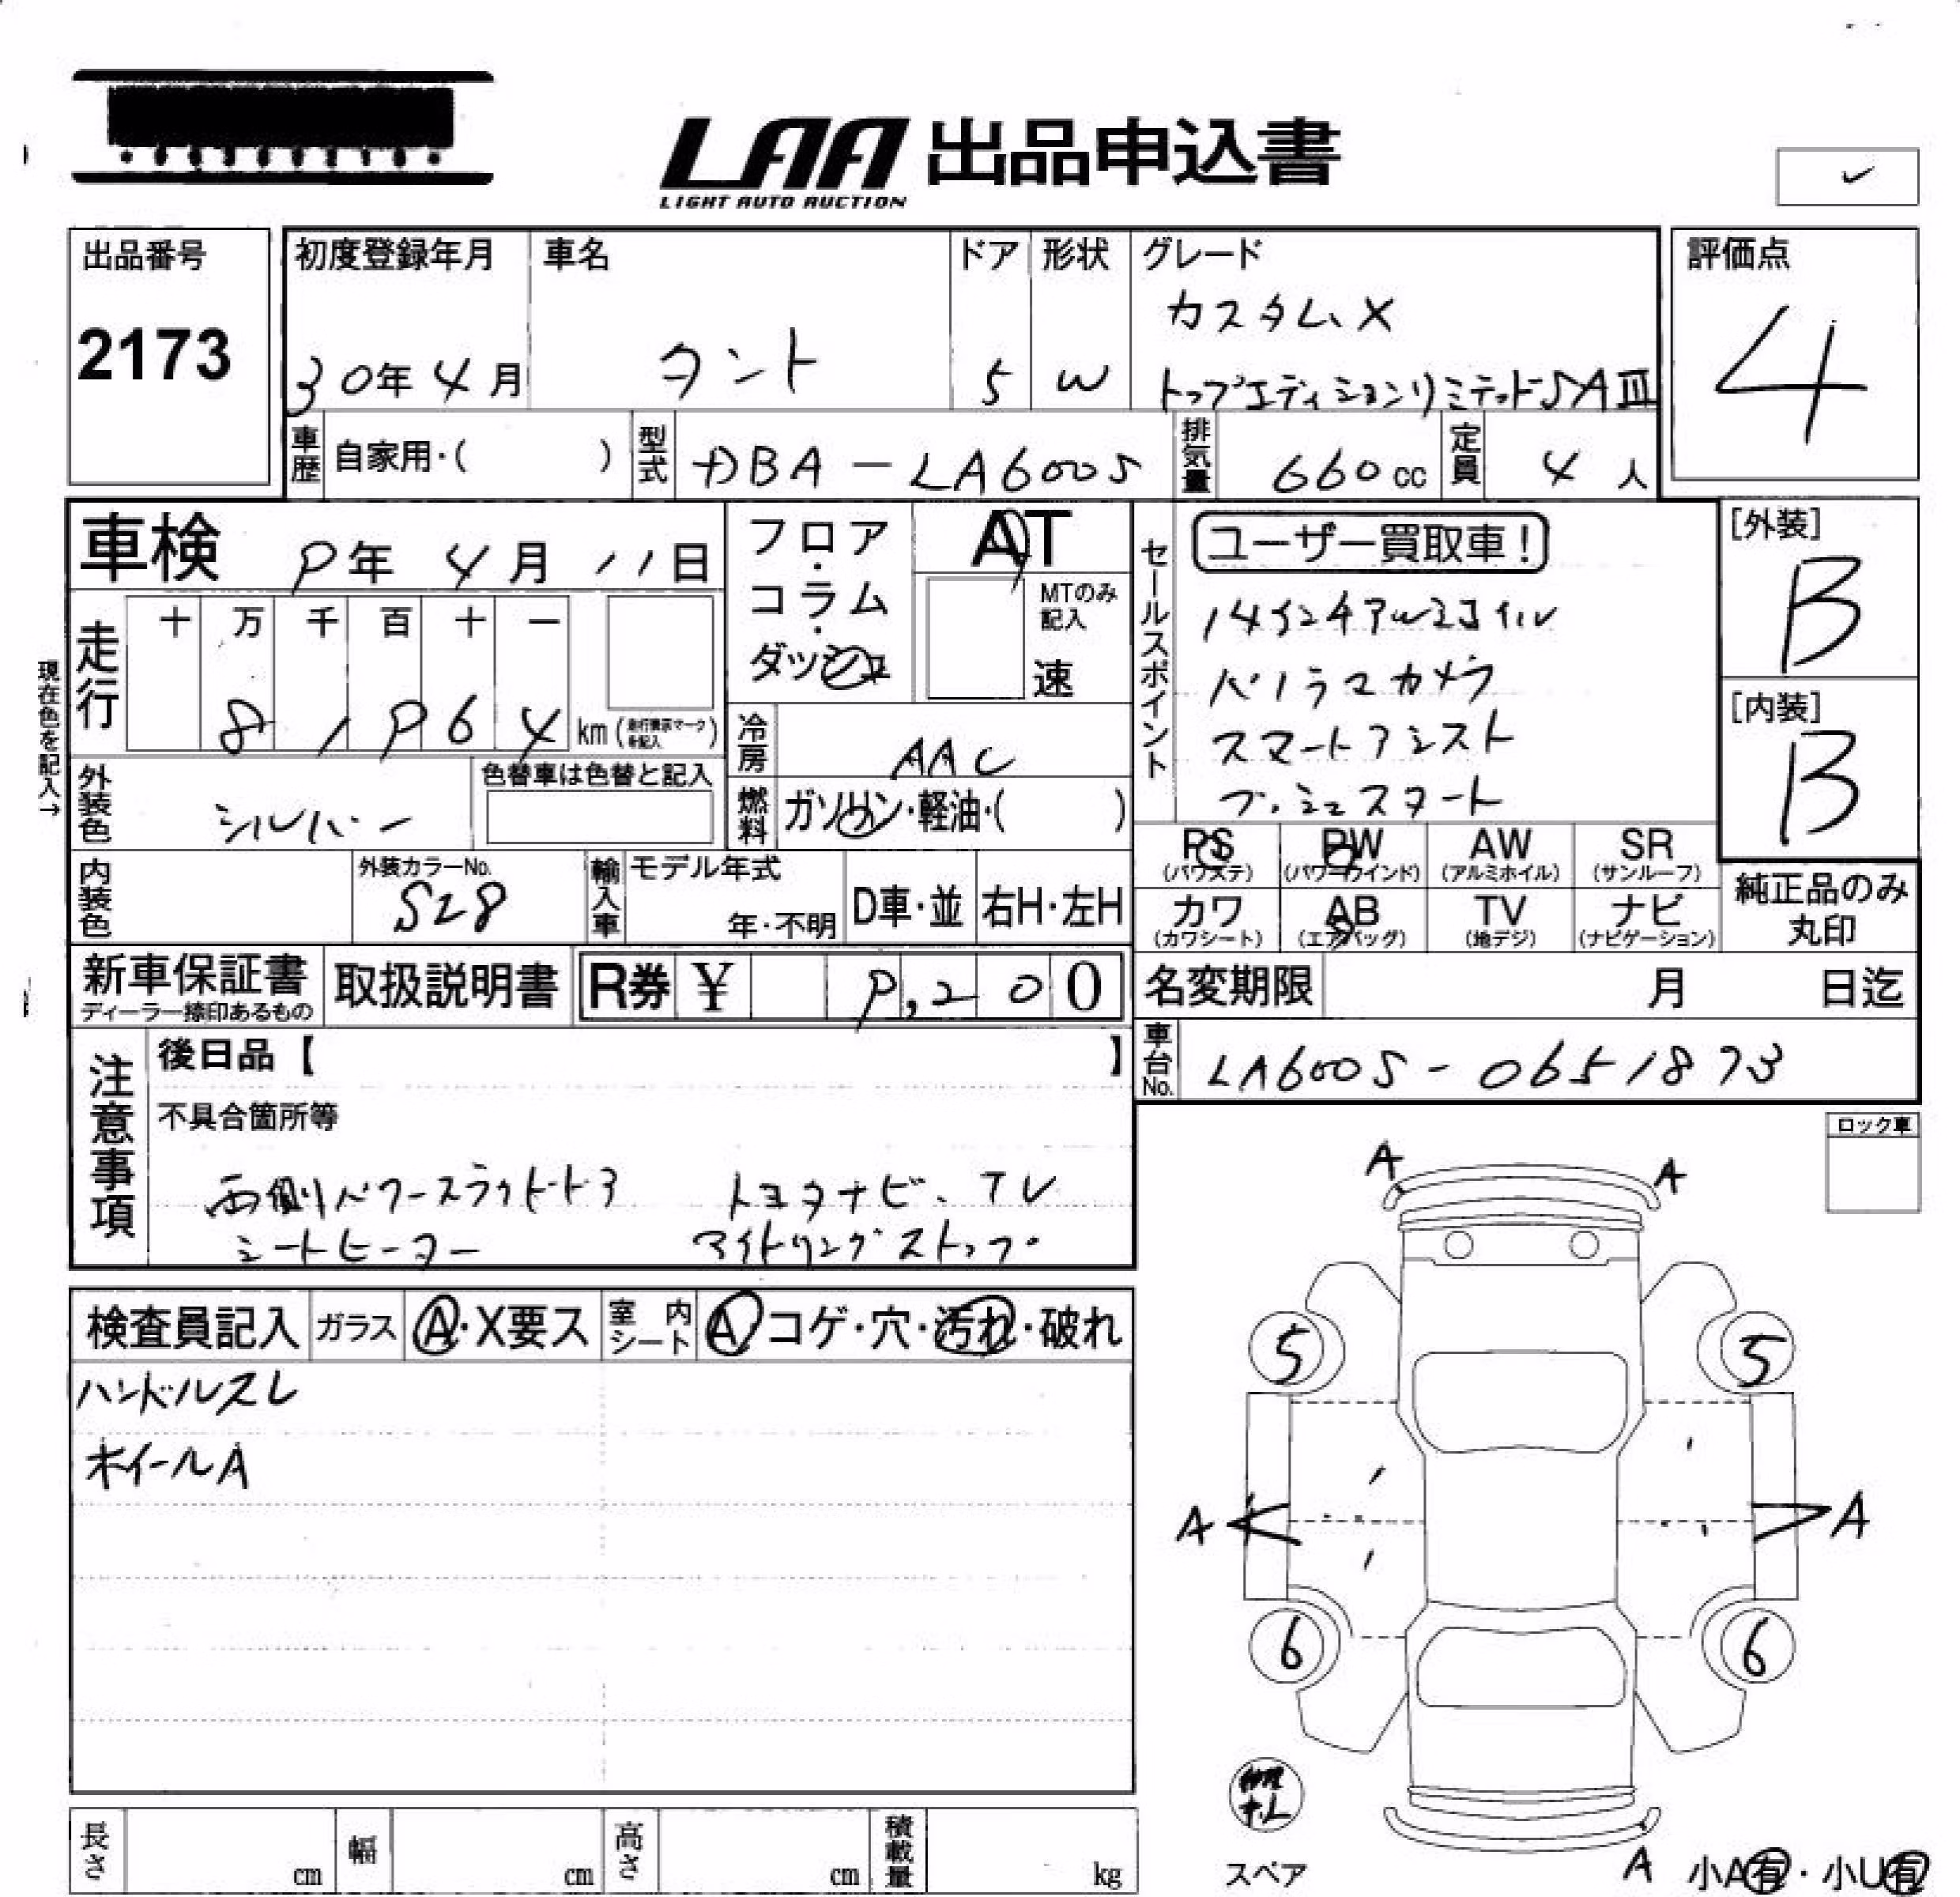 LAA 出品申込書
LIGHT AUTO AUCTION
出品番号
2173
初度登録年月
30年 4月
車名
タント
ドア
5
形状
W
グレード
カスタムX
トップエディションリミテッドSAⅢ
評価点
4
車歴
自家用・( )
型式
DBA-LA600S
排気量
660cc
定員
4人
車検
9年 4月 11日
フロア・コラム・ダッシュ
AT
MTのみ記入
速
セールスポイント
ユーザー買取車!
14インチアルミホイル
パノラマカメラ
スマートアシスト
プッシュスタート
[外装]
B
[内装]
B
現在色を記入→
走行
十 万 千 百 十 一
8 1 9 6 4 km(走行表示マークを記入)
冷房
AAC
外装色
シルバー
色替車は色替と記入
燃料
ガソリン・軽油・( )
PS
(パワステ)
PW
(パワーウインド)
AW
(アルミホイル)
SR
(サンルーフ)
カワ
(カワシート)
AB
(エアバッグ)
TV
(地デジ)
ナビ
(ナビゲーション)
純正品のみ
丸印
内装色
外装カラーNo.
S28
輸入車
モデル年式
年・不明
D車・並
右H・左H
新車保証書
ディーラー捺印あるもの
取扱説明書
R券
¥ 9,200
名変期限
月 日迄
車台No.
LA600S-0651873
注意事項
後日品【 】
不具合箇所等
両側パワースライドドア トヨタナビ、TV
シートヒーター アイドリングストップ
ロック車
検査員記入
ガラス
A・X要ス
室内シート
A コゲ・穴・汚れ・破れ
ハンドルスレ
ホイールA
A A
5 5
A A
6 6
修理ナシ
スペア
A
小A有・小U有
長さ
cm
幅
cm
高さ
cm
積載量
kg